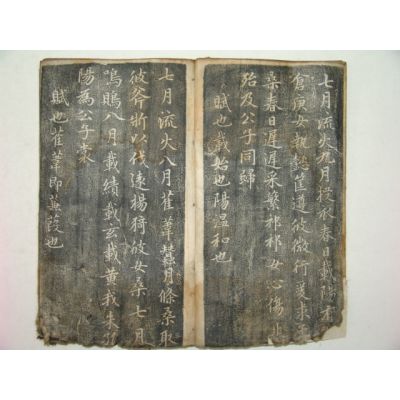 七月流火九月授衣春日載陽有鳴
倉庚女執懿筐遵彼微行爰求柔
桑春日遲遲采蘩祁祁女心傷止
殆及公子同歸
賦也載始也陽溫和也
七月流火八月萑葦蠶月條桑取
彼斧斨以伐遠揚猗彼女桑七月
鳴鵙八月載績載玄載黃我朱孔
陽為公子裳
賦也萑葦即蒹葭也